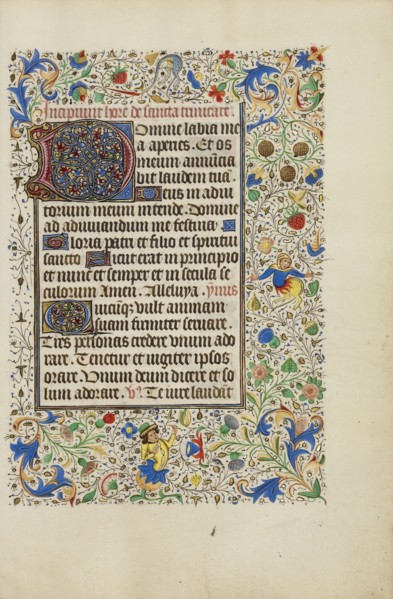 Incipiunt hore de sancta trinitate.
Domine labia me
a aperies. Et os
meum annūcia
bit laudem tuā.
Deus in adiu
torium meum intende. Domine
ad adiuuandum me festina.
Gloria patri et filio et spiritui
sancto Sicut erat in principio
et nunc et semper et in secula se
culorum Amen. Alleluya. ymus
Quicūqʒ vult animam
suam firmiter seruare.
Tres personas credere vnum ado
rare. Tenetur et iugiter ipsos
orare. Vnum deum dicere et so
lum adorare. Te iure laudāt